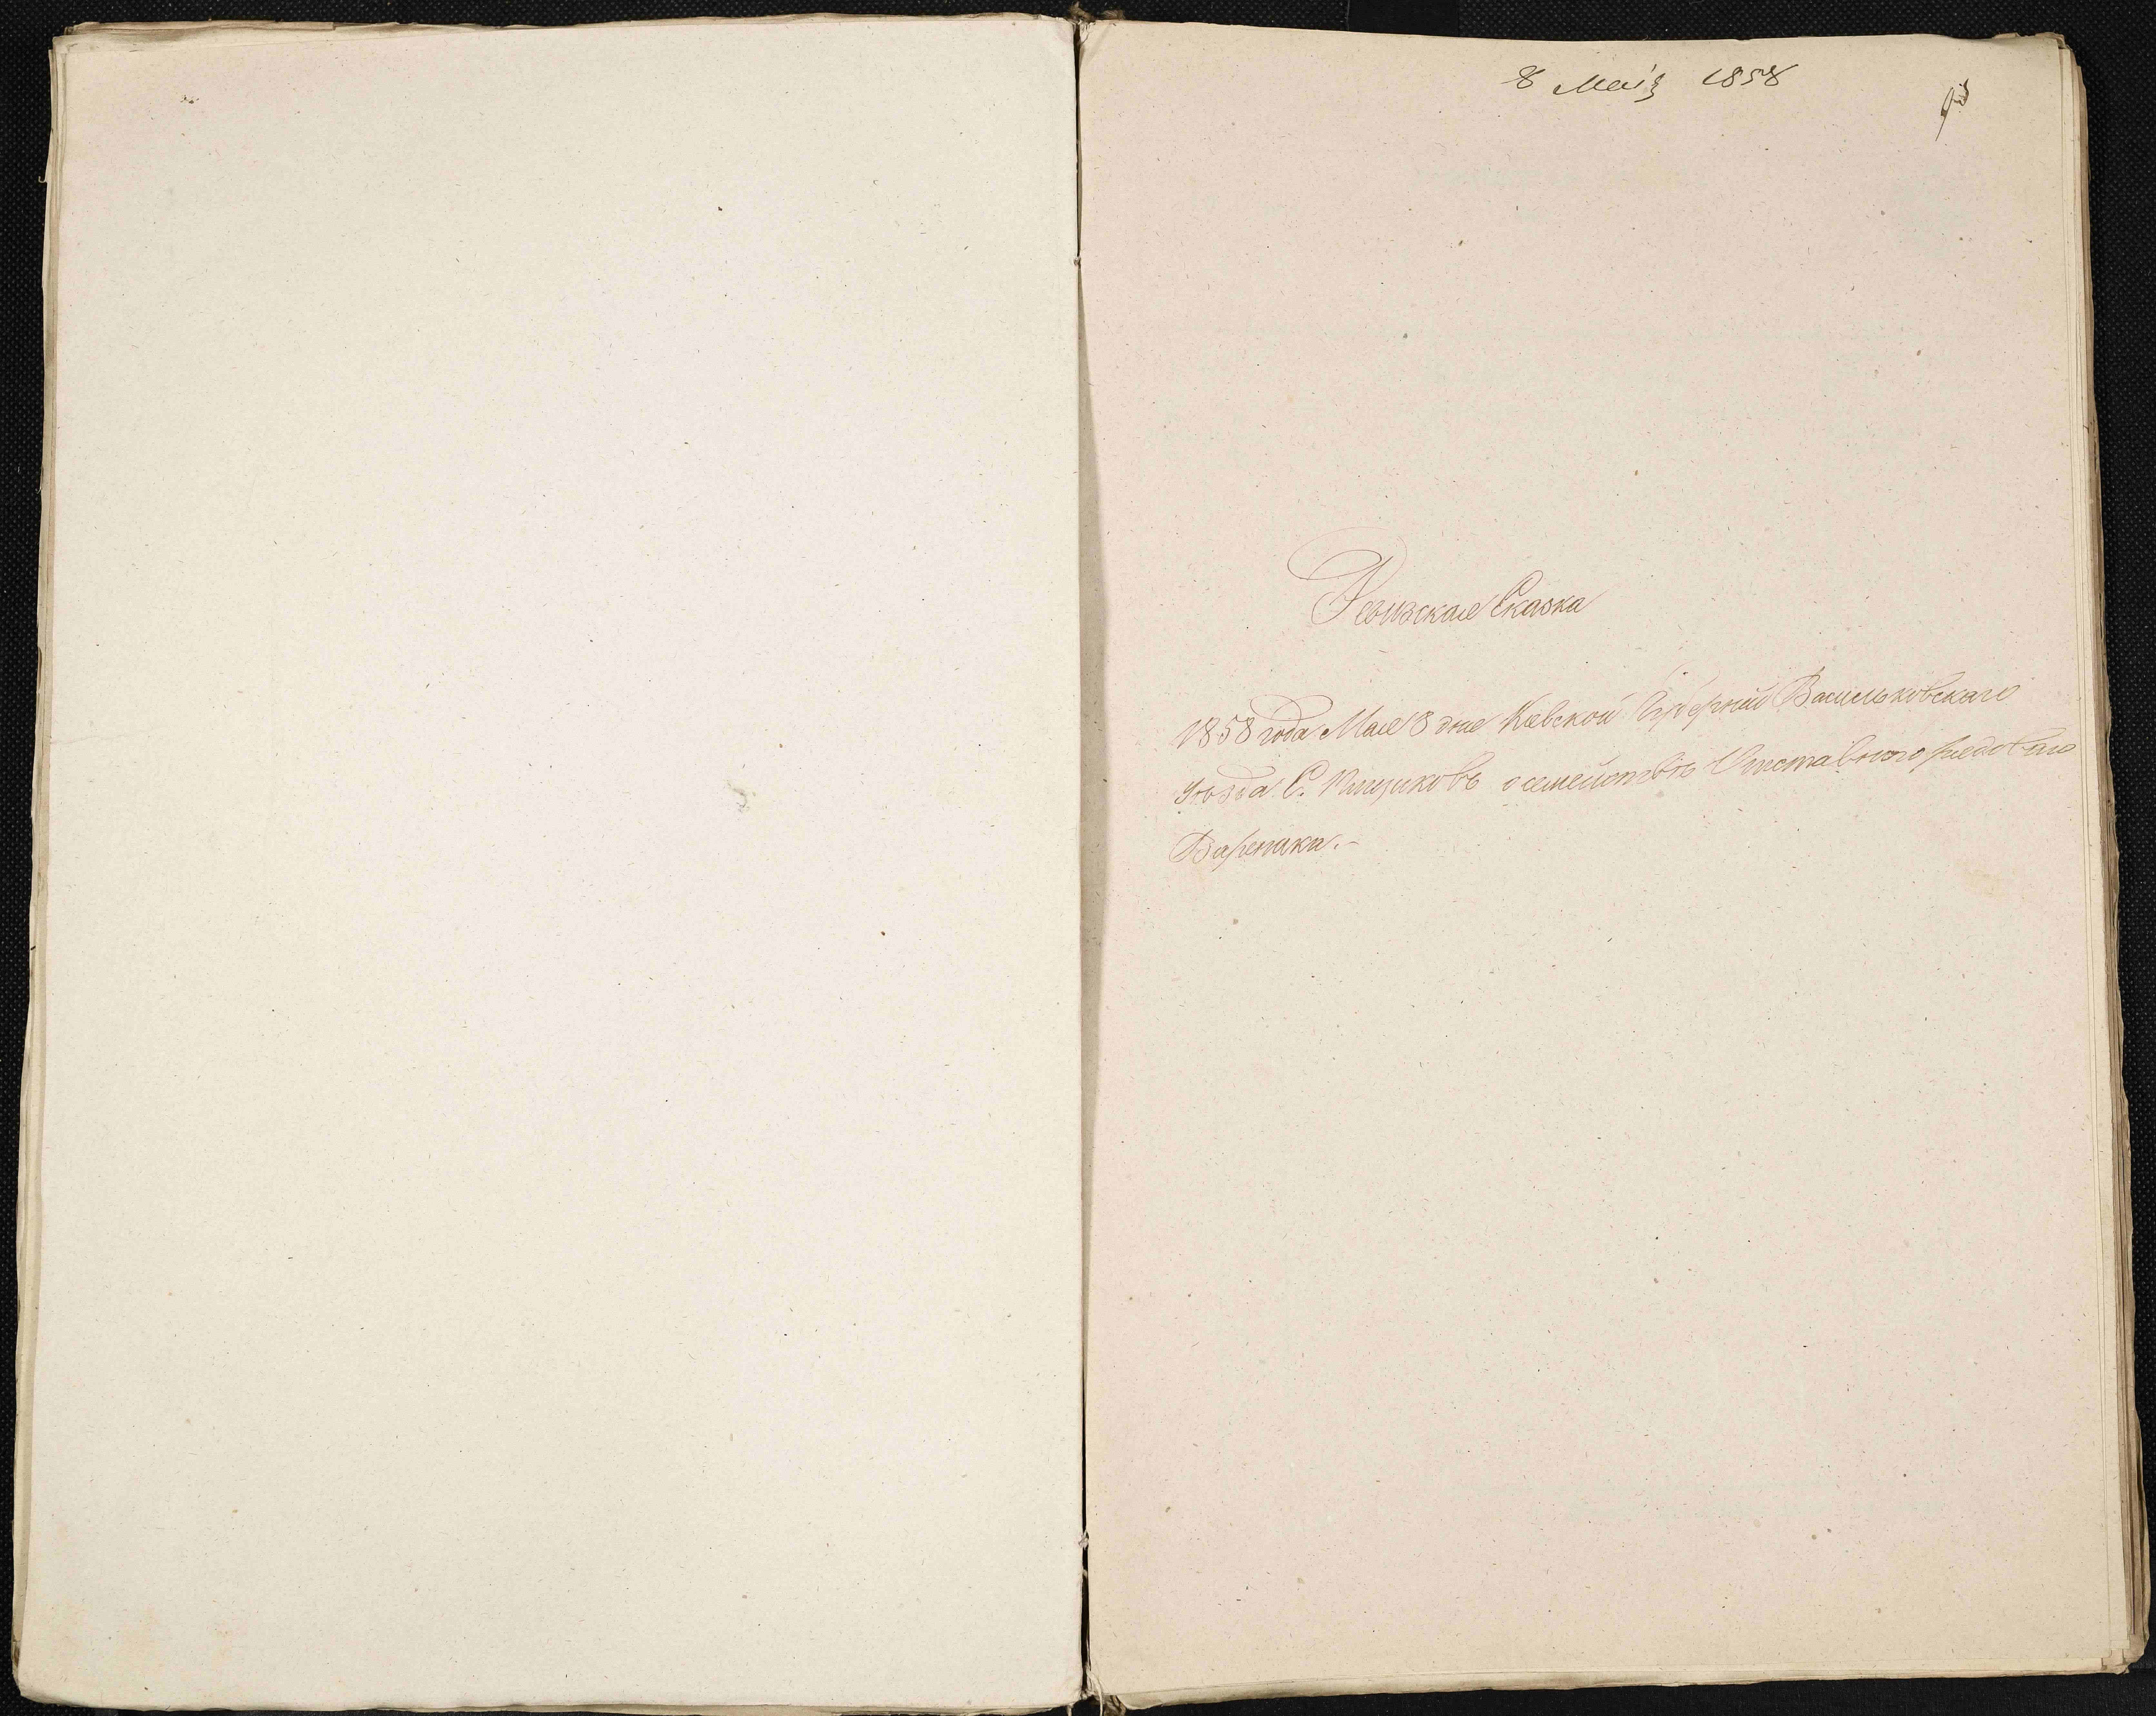 8 Маія 1858
Ревизская Сказка
1858 года Мая 8 дня Киевской Губерніи Васильковскаго
Уѣзда С. о семействѣ Отставного рядового
Вареника.-